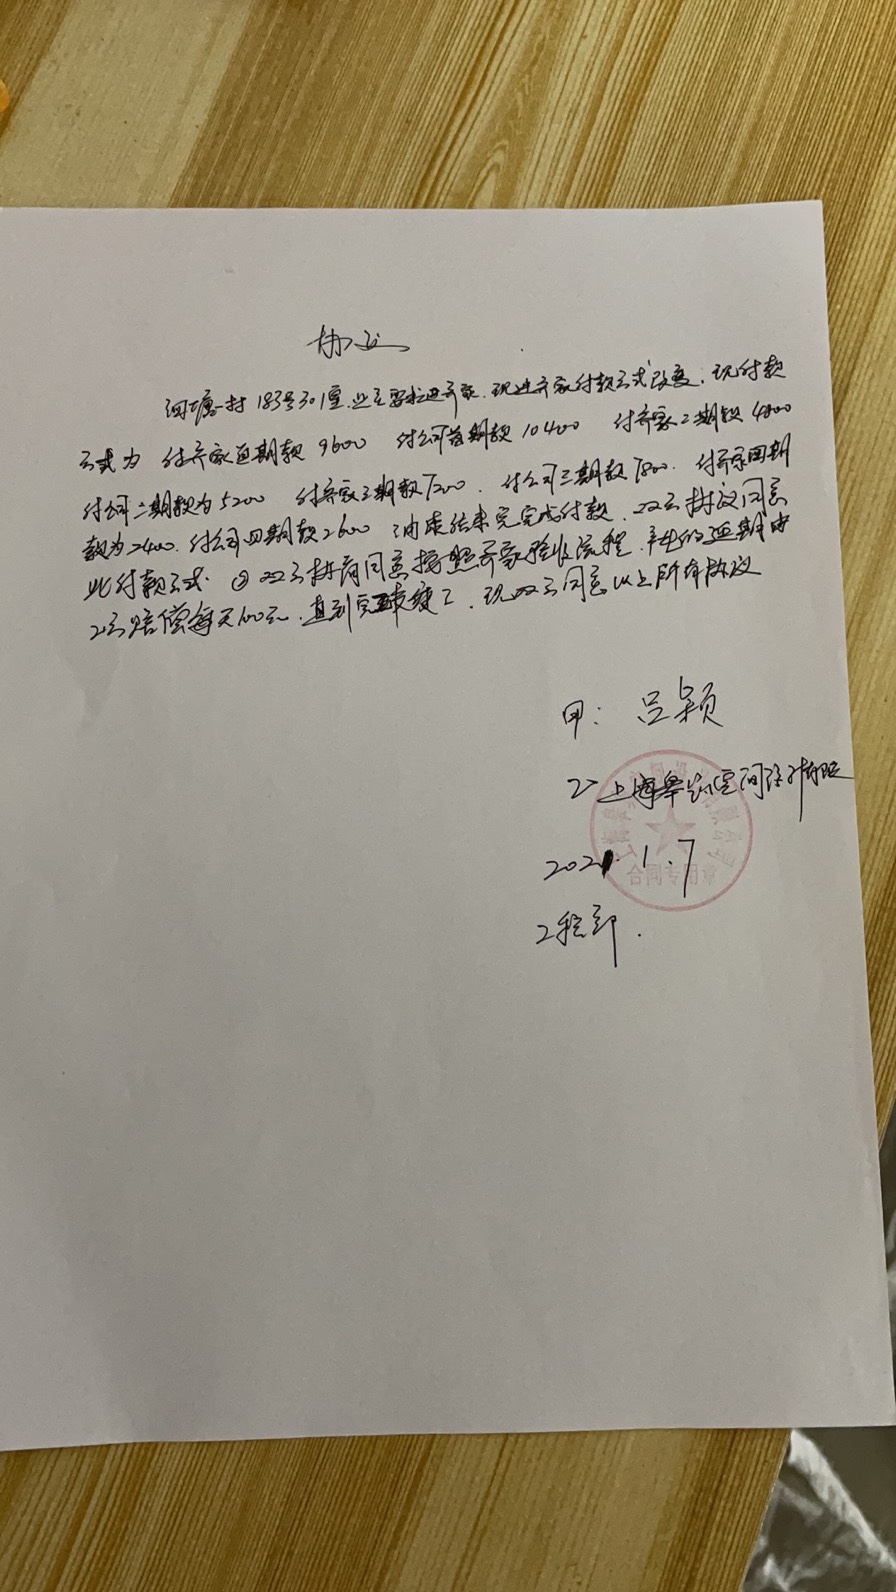 协议
泗塘一村183号301室.业主要求进齐家.现进齐家付款方式改变.现付款
方式为 付齐家首期款9600 付公司首期款10400 付齐家二期款4800
付公司二期款为5200 付齐家三期款7200. 付公司三期款7800. 付齐家四期
款为2400.付公司四期款2600 结束完成付款.双方协议同意
此付款方式. ② 双方协商同意按照齐家验收流程.产生的延期由
乙方赔偿每天100元.直到完工. 现双方同意以上所有协议
甲: 吕颖
乙 上海空间设计有限
2021.1.7
合同专用章
工程部.